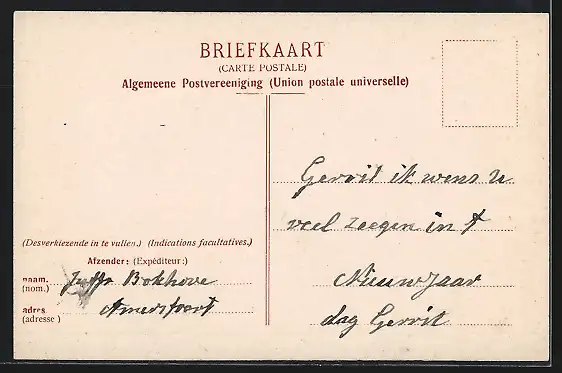 BRIEFKAART
(CARTE POSTALE)
Algemeene Postvereeniging (Union postale universelle)
Gerrit ik wens u
veel zeegen in t
Nieuwjaar
dag Gerrit
(Desverkiezende in te vullen.) (Indications facultatives.)
Afzender: (Expéditeur:)
naam. Juffr Bokhove
(nom.)
adres Amersfoort
(adresse)